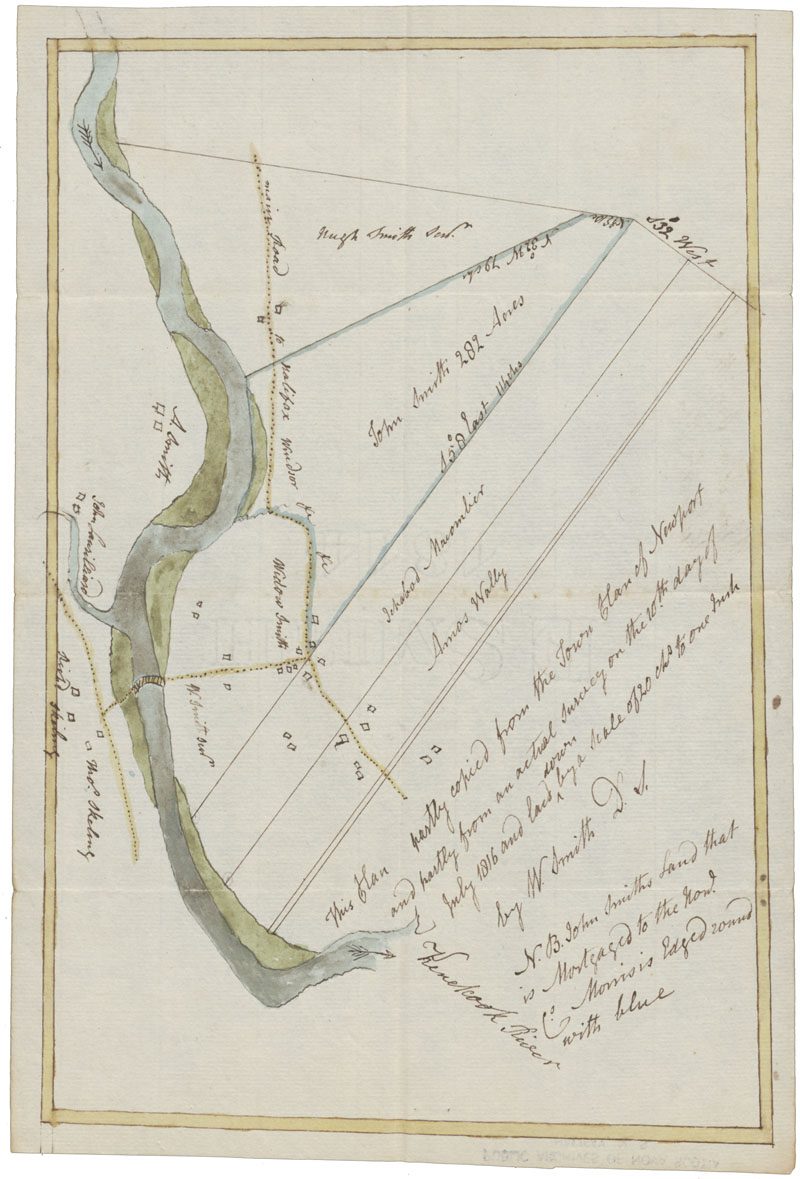 Hugh Smith Senr
S 32° West
N 32 W 79 ch.
main Road to Halifax Windsor &c &c
John Smith 282 Acres
S 58 East
A Smith
John
Widow Smith
Ichabod Macomber
Amos Wally
W. Smith Senr
David Skeling
Thos. Skeling
This Plan partly copied from the Town Plan of Newport
and partly from an actual survey on the 10th day of
July 1816 and laid down by a scale of 20 chs to one Inch
by W Smith D. S.
N. B. John Smiths Land that
is Mortgaged to the Hond.
Cs Morris is Edged round
with blue
River
PUBLIC ARCHIVES OF NOVA SCOTIA